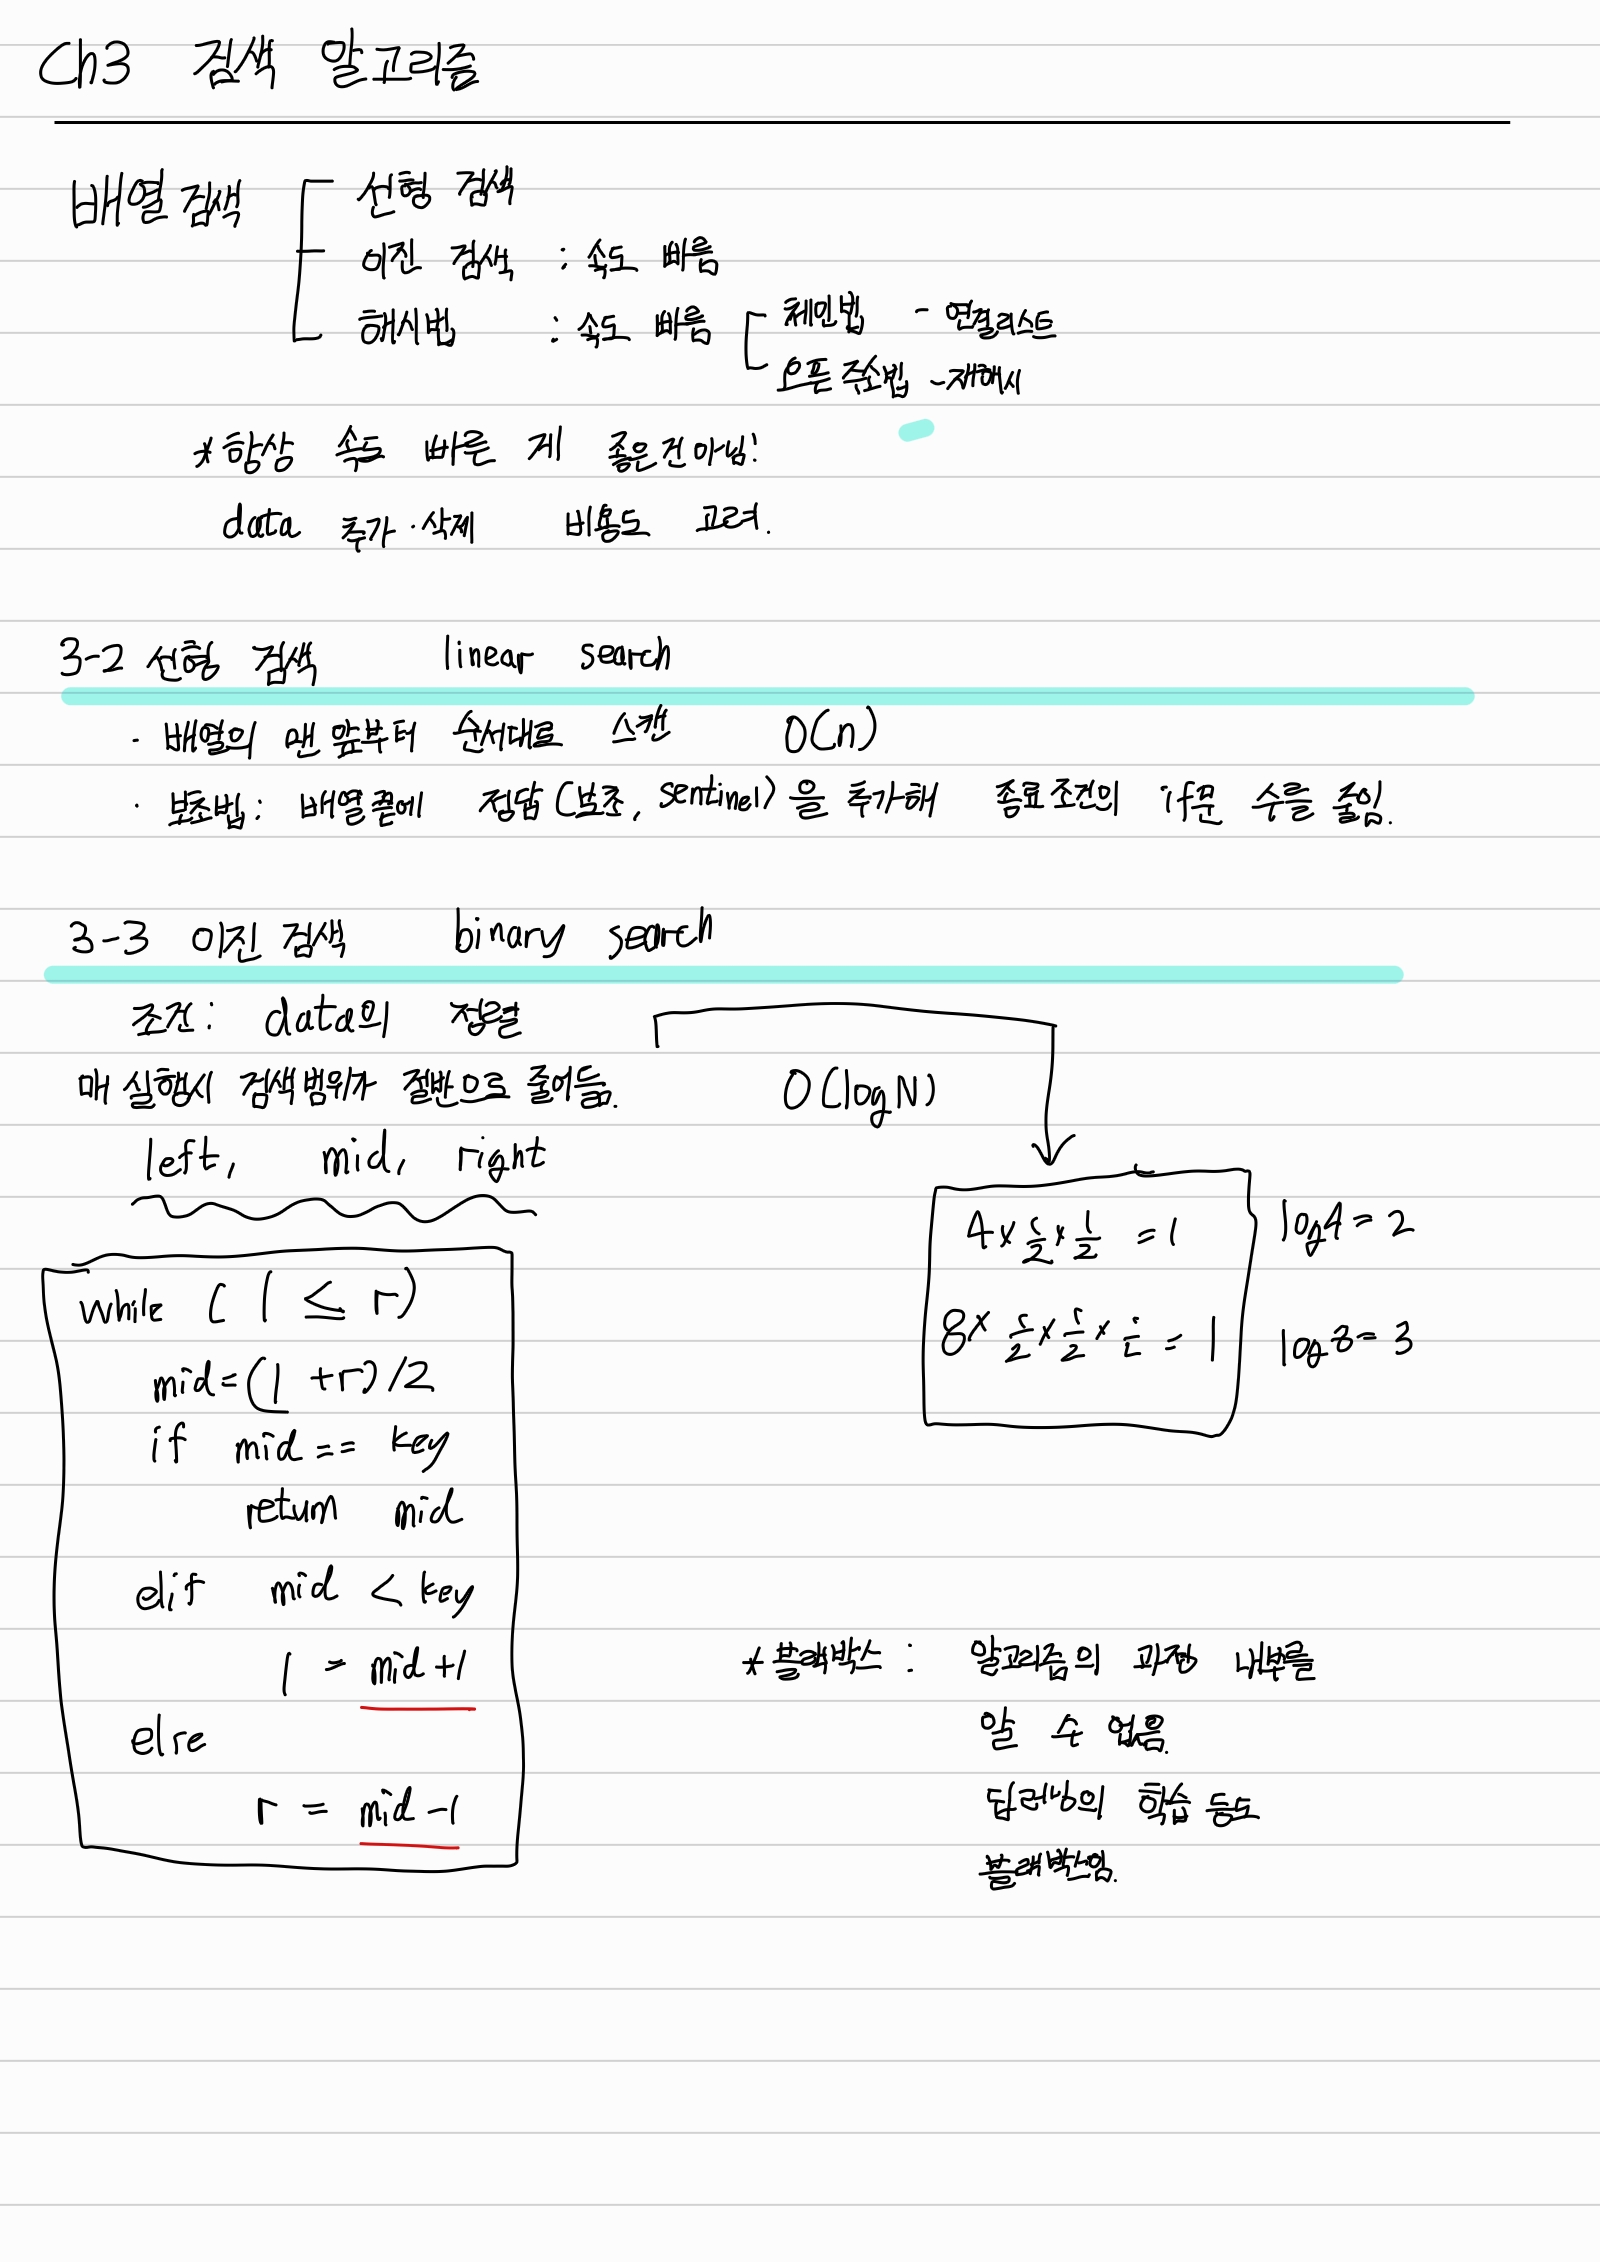 Ch3 검색 알고리즘
배열 검색
선형 검색
이진 검색 : 속도 빠름
해시법 : 속도 빠름
체인법 - 연결리스트
오픈 주소법 - 재해시
* 항상 속도 빠른 게 좋은건 아님!
data 추가·삭제 비용도 고려.
3-2 선형 검색 linear search
· 배열의 맨 앞부터 순서대로 스캔 O(n)
· 보초법: 배열 끝에 정답 (보초, sentinel) 을 추가해 종료조건의 if문 수를 줄임.
3-3 이진 검색 binary search
조건: data의 정렬
매 실행시 검색범위가 절반으로 줄어듦. O(logN)
left, mid, right
4 × 1/2 × 1/2 = 1 log4 = 2
8 × 1/2 × 1/2 × 1/2 = 1 log8 = 3
while ( l ≤ r)
mid = (l + r) /2
if mid == key
return mid
elif mid < key
l = mid +1
else
r = mid -1
* 블랙박스 : 알고리즘의 과정 내부를
알 수 없음.
딥러닝의 학습 등도
블랙박스임.